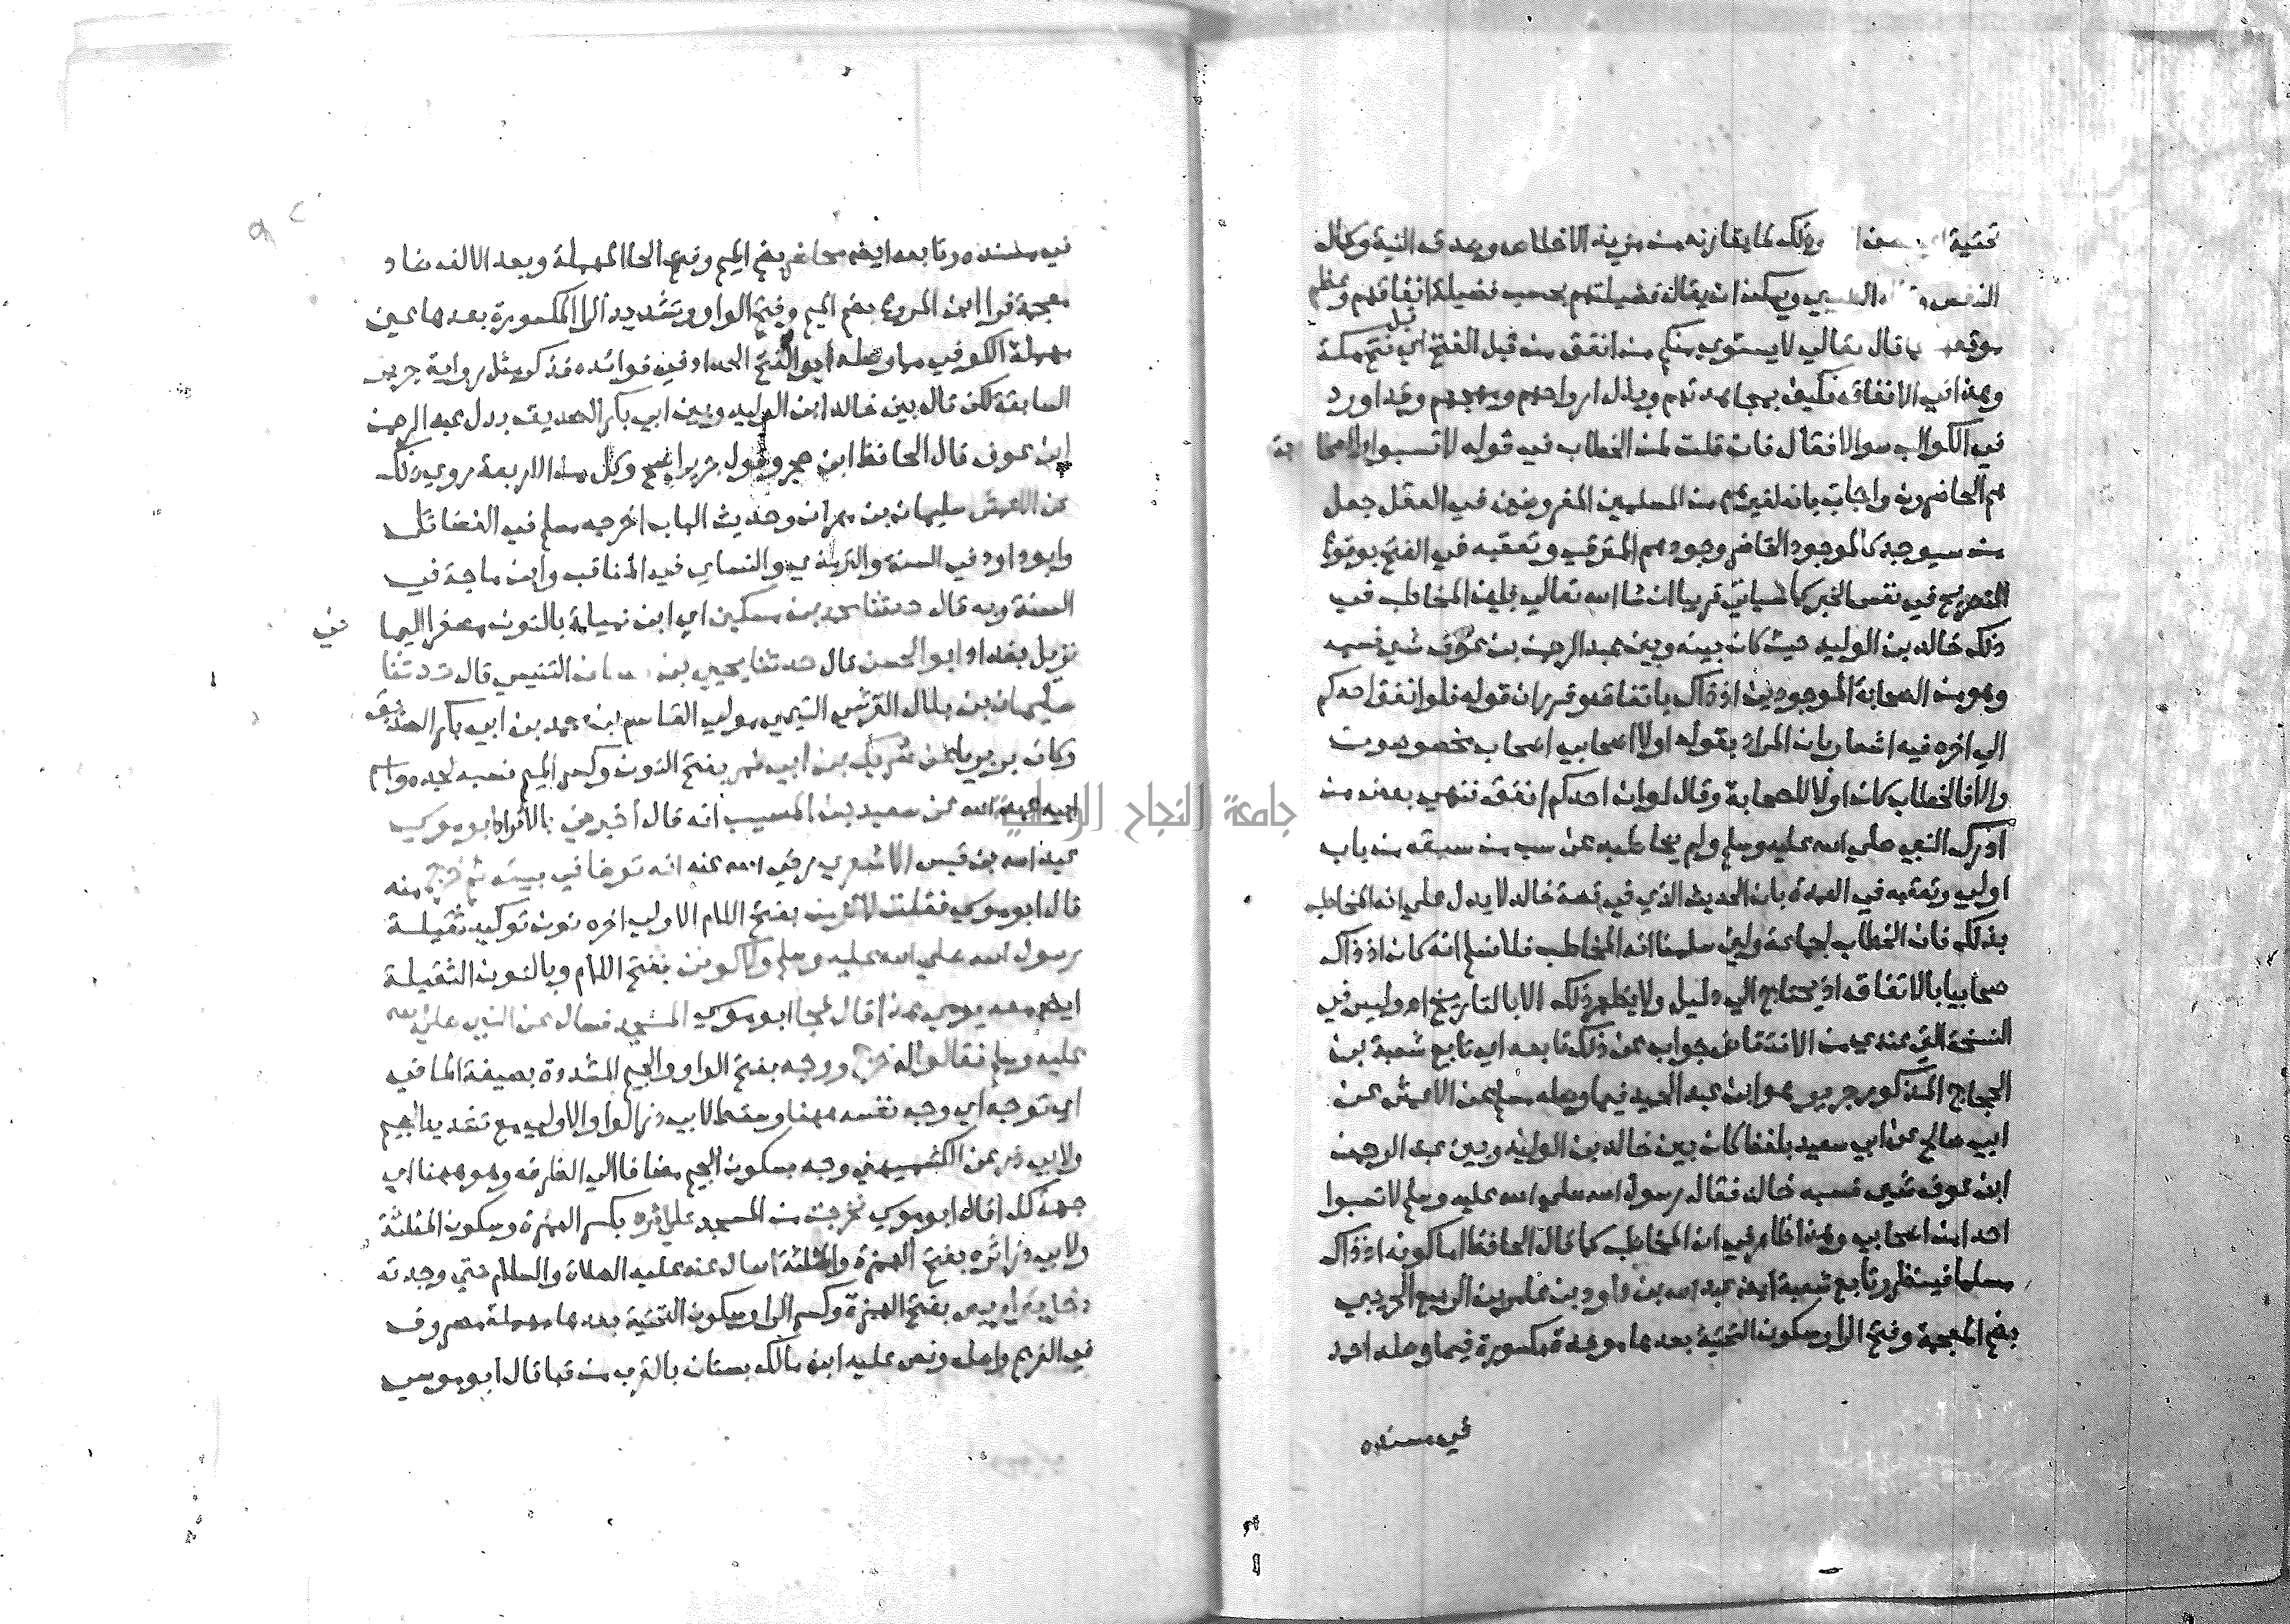 وذلك لما يقارنه من مزيد الاخلاص وصدق النية وكمال
النفس الطيبي ويمكن ان يقال فضيلتهم بحسب فضيلة انفاقهم وعظم
موقعه قال تعالي لا يستوي منكم من انفق من قبل الفتح اي قبل فتح مكة
وهذا في الانفاق فكيف بمجاهدتهم وبذل ارواحهم ومهجهم وقد اورد
في الكواكب سوالا فقال فان قلت لمن الخطاب في قوله لا تسبوا اصحابي والصحابة
هم الحاضرون واجاب بانه لغيرهم من المسلمين المفروضين في العقل جعل
من سيوجد كالموجود الحاضر وجودهم المترقب وتعقبه في الفتح بوقوع
التصريح في نفس الخبر كما سياتي قريبا ان شا الله تعالي فان المخاطب في
ذلك خالد بن الوليد حيث كان بينه وبين عبد الرحمن بن عوف شي فسبه
وهو من الصحابة الموجودين اذ ذاك باتفاق وقرر ان قوله فلو انفق احدكم
الي اخره فيه اشعار بان المراد بقوله اولا اصحابي اصحاب مخصوصون
والا فالخطاب كان اولا للصحابة وقال لو ان احدكم انفق فنهي بعض من
ادرك النبي صلي الله عليه وسلم ولم يخاطبه عن سب من سبقه من باب
اولي وتعقبه في العمدة بان الحديث الذي في قصة خالد لا يدل علي انه المخاطب
بذلك فان الخطاب لجماعة ولين سلمنا انه المخاطب فلا نسلم انه كان اذ ذاك
صحابيا بالاتفاق اذ يحتاج الي دليل ولا يظهر ذلك الا بالتاريخ اه وليس في
النسخة التي عندي من الانتقاض جواب عن ذلك تابعه اي تابع شعبة بن
الحجاج المذكور جرير هو ابن عبد الحميد فيما وصله مسلم عن الاعمش عن
ابي صالح عن ابي سعيد بلفظ كان بين خالد بن الوليد وبين عبد الرحمن
ابن عوف شي فسبه خالد فقال رسول الله صلي الله عليه وسلم لا تسبوا
احدا من اصحابي وهذا ظاهر في ان المخاطب كما قال الحافظ اما كونه اذ ذاك
مسلما فينظر وتابع شعبة ايضا عبد الله بن داود بن عامر بن الربيع الخريبي
بضم المعجمة وفتح الرا وسكون التحتية بعدها موحدة مكسورة فيما وصله احمد
في مسنده
في مسنده وتابعه ايضا محاضر بضم الميم وفتح الحا المهملة وبعد الالف ضاد
معجمة فرا ابن المورع بضم الميم وفتح الواو وتشديد الرا المكسورة بعدها عين
مهملة الكوفي مما وصله ابو الفتح الحداد في فوائده فذكر مثل رواية جرير
السابقة لكن قال بين خالد ابن الوليد وبين ابي بكر الصديق بدل عبد الرحمن
ابن عوف قال الحافظ ابن حجر وقول جرير اصح وكل من الاربعة روي ذلك
عن الاعمش سليمان بن مهران وحديث الباب اخرجه مسلم في الفضائل
وابو داود في السنة والترمذي والنساي في المناقب وابن ماجة في
السنة وبه قال حدثنا محمد بن مسكين اي ابن نميلة بالنون مصغرا اليما
ني
نزيل بغداد ابو الحسن قال حدثنا يحيي بن حسان التنيسي قال حدثنا
سليمان بن بلال القرشي التيمي مولي القاسم بن محمد بن ابي بكر الصديق
وكان بربريا عن شريك بن ابي نمر بفتح النون وكسر الميم نسبه لجده واسم
ابيه عبد الله عن سعيد بن المسيب انه قال اخبرني بالافراد ابو موسي
عبد الله بن قيس الاشعري رضي الله عنه انه توضا في بيته ثم خرج منه
قال ابو موسي فقلت لالزمن بفتح اللام الاولي اخره نون توكيد ثقيلة
رسول الله صلي الله عليه وسلم ولاكونن بفتح اللام وبالنون الثقيلة
ايضا معه يومي هذا قال فجا ابو موسي المسجد فسال عن النبي صلي الله
عليه وسلم فقالوا له خرج ووجه بفتح الواو والجيم المشددة بصيغة الماضي
اي توجه اي وجه نفسه ههنا وسقط لابي ذر الواو الاولي مع تشديد الجيم
ولابي ذر عن الكشميهني وجه بسكون الجيم مضافا الي الظرف وهو ههنا اي
جهة كذا قال ابو موسي فخرجت من المسجد علي اثره بكسر الهمزة وسكون المثلثة
ولابي ذر اثره بفتح الهمزة والمثلثة اسال عنه عليه الصلاة والسلام حتي وجدته
دخل بير اريس بفتح الهمزة وكسر الرا وسكون التحتية بعدها مهملة مصروف
في الفرع واصله ونص عليه ابن مالك بستان بالقرب من قبا قال ابو موسي
جامعة النجاح الوطنية